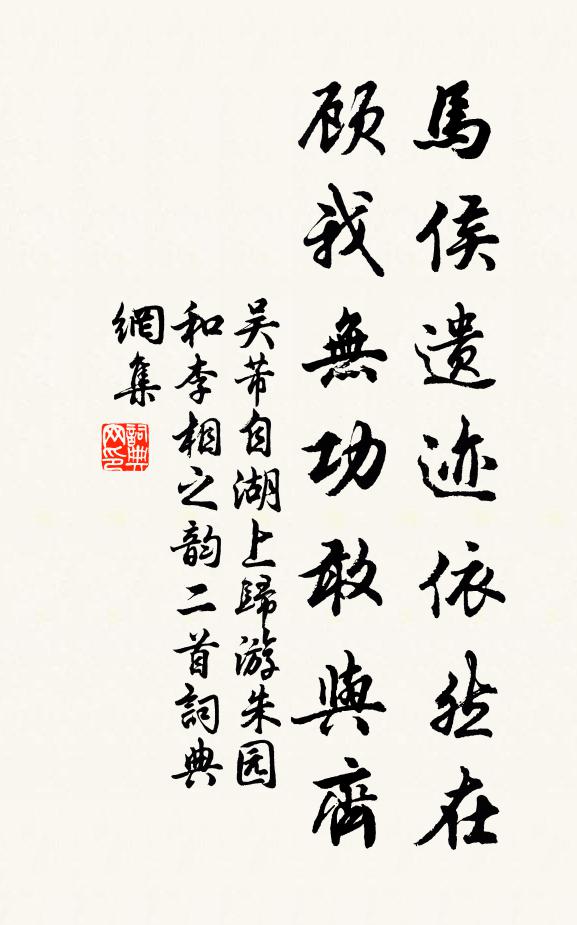 馬侯遺迹依然在
顾我無功敢與齊
吴芾自湖上歸游朱园
和李相之韵二首詞典
網集
詞典网印